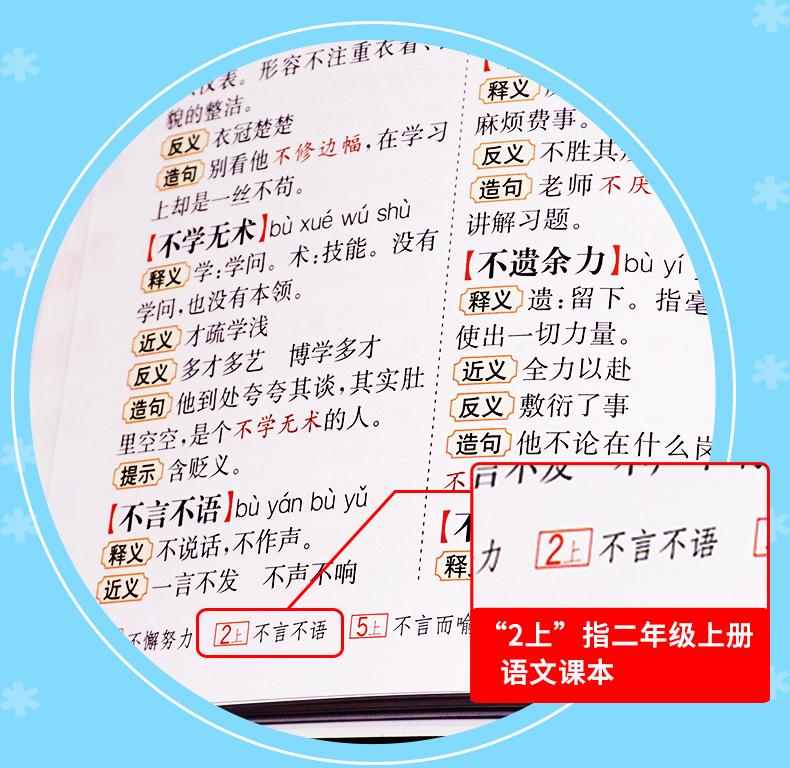 仪表。形容不注重衣着、
貌的整洁。
反义 衣冠楚楚
造句 别看他不修边幅,在学习
上却是一丝不苟。
【不学无术】bù xué wú shù
释义 学:学问。术:技能。没有
学问,也没有本领。
近义 才疏学浅
反义 多才多艺 博学多才
造句 他到处夸夸其谈,其实肚
里空空,是个不学无术的人。
提示 含贬义。
【不言不语】bù yán bù yǔ
释义 不说话,不作声。
近义 一言不发 不声不响
释义
麻烦费事。
反义 不胜其
造句 老师不厌
讲解习题。
【不遗余力】bù yí
释义 遗:留下。指毫
使出一切力量。
近义 全力以赴
反义 敷衍了事
造句 他不论在什么岗
不
【不
释
不懈努力 2上 不言不语 5上 不言而喻
力 2上 不言不语
“2上”指二年级上册
语文课本